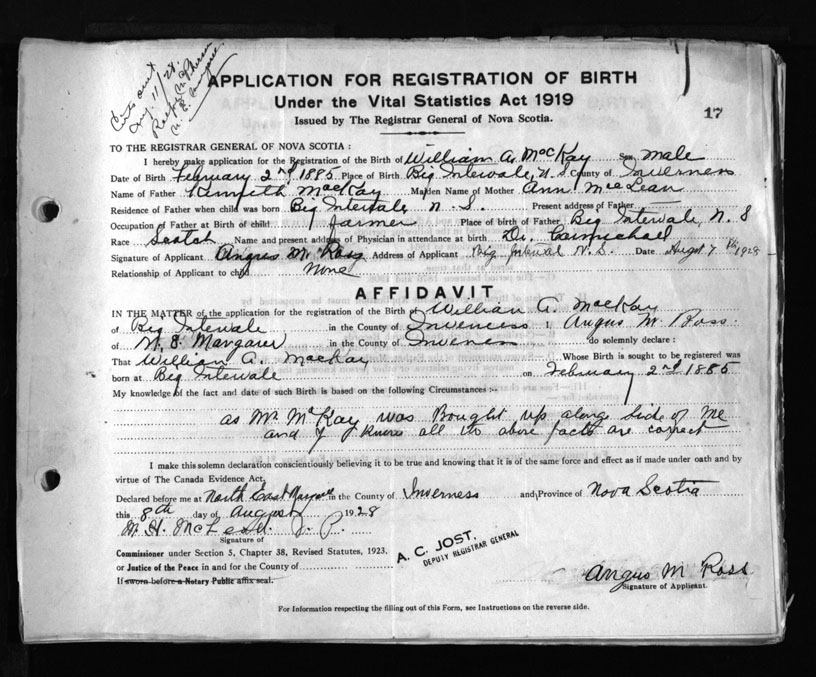 APPLICATION FOR REGISTRATION OF BIRTH
Under the Vital Statistics Act 1919
Issued by The Registrar General of Nova Scotia.
17
TO THE REGISTRAR GENERAL OF NOVA SCOTIA :
I hereby make application for the Registration of the Birth of William A. MacKay Sex male
Date of Birth February 2nd 1885 Place of Birth Big Intervale, N. S. County of Inverness
Name of Father Kenneth MacKay Maiden Name of Mother Ann MacLean
Residence of Father when child was born Big Intervale, N. S. Present address of Father
Occupation of Father at Birth of child farmer Place of birth of Father Big Intervale, N. S
Race Scotch Name and present address of Physician in attendance at birth Dr. Carmichael
Signature of Applicant Angus M Ross Address of Applicant Big Interval N. S. Date August 7th 1928
Relationship of Applicant to child None
AFFIDAVIT
IN THE MATTER of the application for the registration of the Birth of William A. MacKay
of Big Intervale in the County of Inverness I, Angus M. Ross.
of N. E. Margaree in the County of Inverness do solemnly declare :
That William A. MacKay Whose Birth is sought to be registered was
born at Big Intervale on February 2nd 1885
My knowledge of the fact and date of such Birth is based on the following Circumstances :-
as Mr. McKay was Bought up along Side of Me
and I know all the above facts are correct
I make this solemn declaration conscientiously believing it to be true and knowing that it is of the same force and effect as if made under oath and by
virtue of The Canada Evidence Act,
Declared before me at North East Margaree in the County of Inverness and Province of Nova Scotia
this 8th day of August 1928
M. H. McLeod. J. P.
Signature of
Commissioner under Section 5, Chapter 38, Revised Statutes, 1923.
or Justice of the Peace in and for the County of
If sworn before a Notary Public affix seal.
A. C. JOST,
DEPUTY REGISTRAR GENERAL
Angus M Ross
Signature of Applicant.
For Information respecting the filling out of this Form, see Instructions on the reverse side.